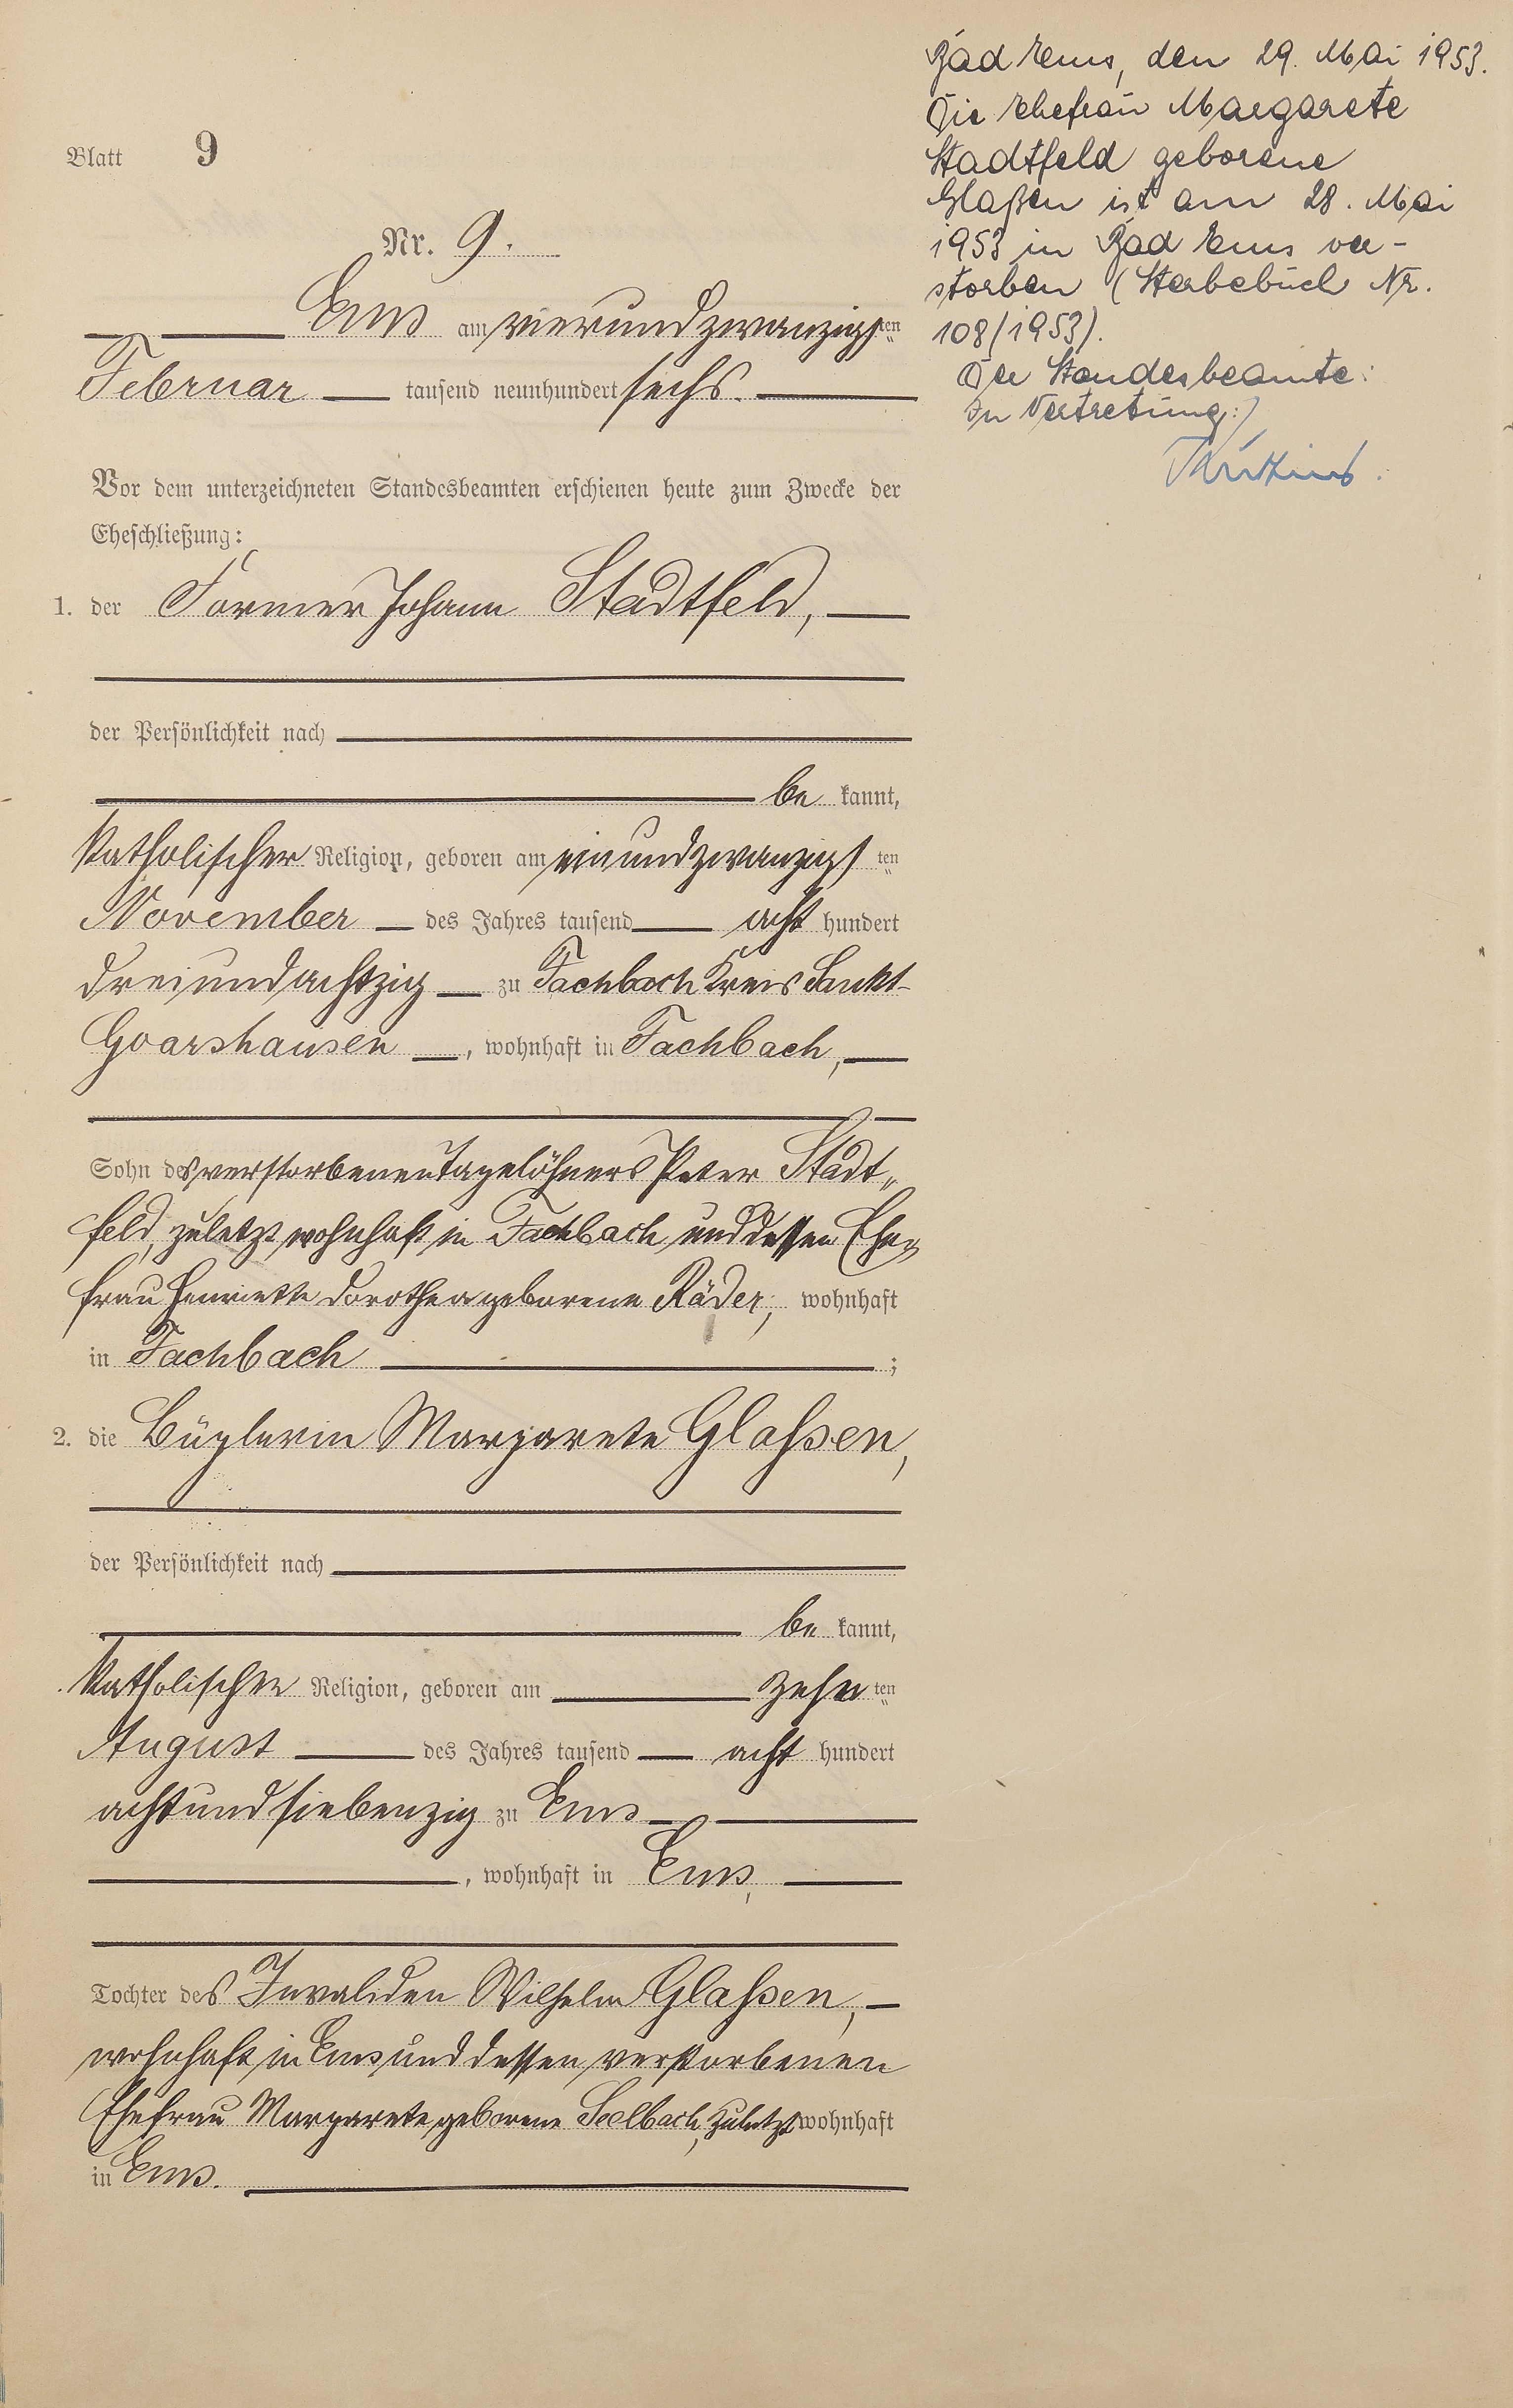 Blatt 9
Nr. 9.
Ems am vierundzwanzigsten
Februar tausend neunhundert sechs.
Vor dem unterzeichneten Standesbeamten erschienen heute zum Zwecke der
Eheschließung:
1. der Former Johann Stadtfeld,
der Persönlichkeit nach
be kannt,
katholischer Religion, geboren am einundzwanzigsten
November des Jahres tausend acht hundert
dreiundachtzig zu Fachbach Kreis Sankt-
Goarshausen, wohnhaft in Fachbach,
Sohn des verstorbenen Tagelöhners Peter Stadt„
feld, zuletzt wohnhaft in Fachbach und dessen Ehe„
frau Henriette Dorothea geborene Räder, wohnhaft
in Fachbach ;
2. die Büglerin Margarete Glaßen,
der Persönlichkeit nach
be kannt,
katholischer Religion, geboren am zehnten
August des Jahres tausend acht hundert
achtundsiebenzig zu Ems
, wohnhaft in Ems,
Tochter des Invaliden Wilhelm Glaßen,
wohnhaft in Ems und dessen verstorbenen
Ehefrau Margarete geborene Seelbach, zuletzt wohnhaft
in Ems.
Bad Ems, den 29. Mai 1953.
Die Ehefrau Margarete
Stadtfeld geborene
Glaßen ist am 28. Mai
1953 in Bad Ems ver-
storben (Sterbebuch Nr.
108/1953).
Der Standesbeamte:
In Vertretung: